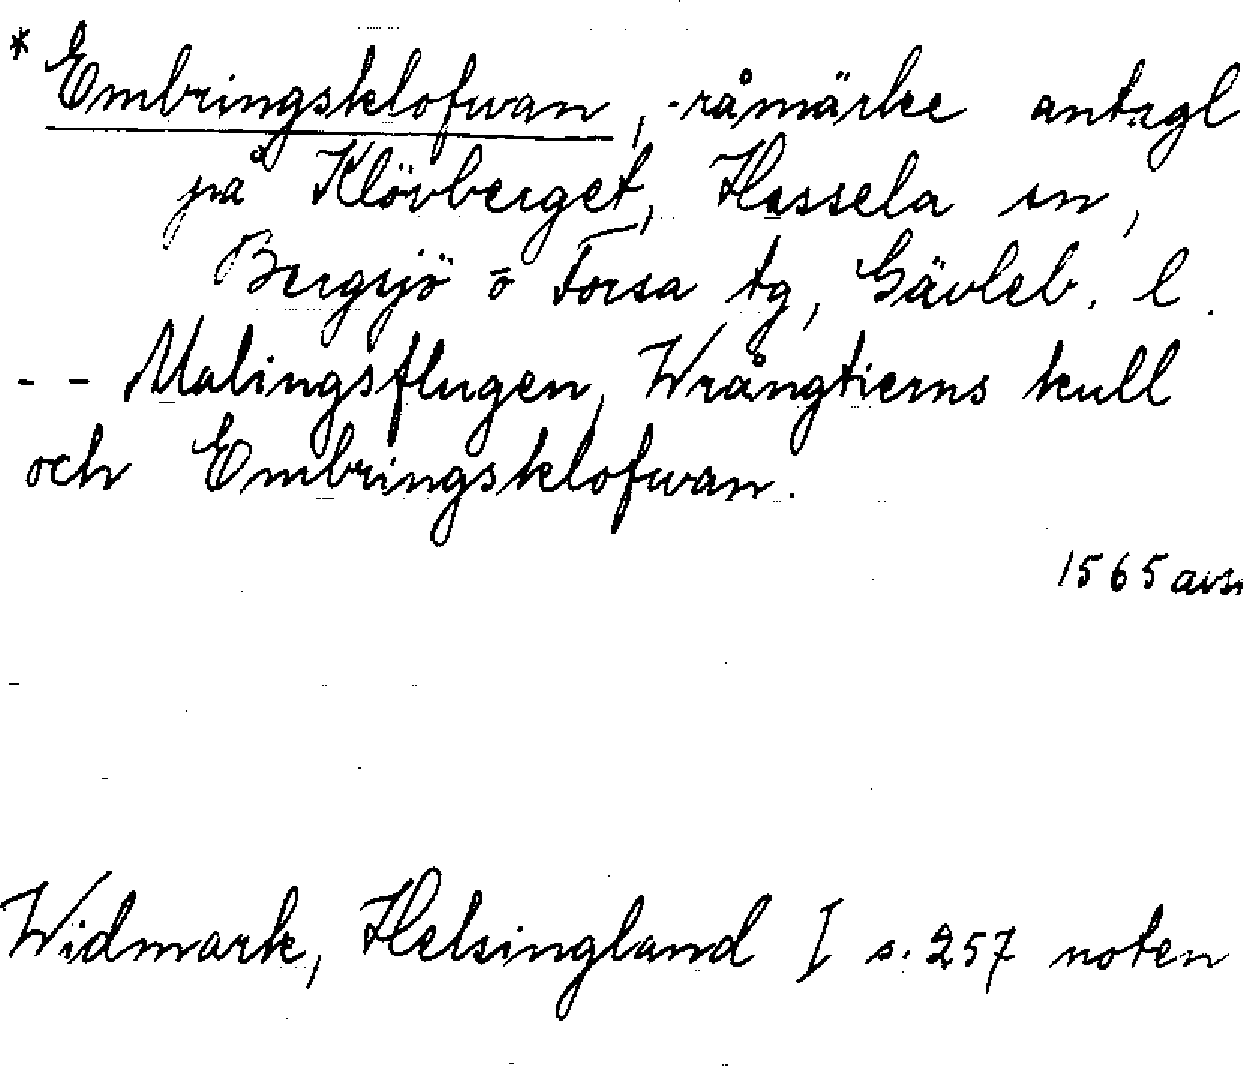 * Embringsklofwan, råmärke antagl
på Klövberget, Hassela sn,
Bergsjö o Forsa tg, Gävleb. l.
- - Malingsflugen, Wrångtierns kull
och Embringsklofwan.
1565 avs
Widmark, Helsingland I s. 257 noten